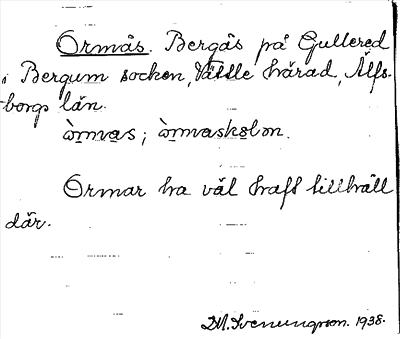 Ormås. Bergås på Gullered
i Bergum socken, Vättle härad, Älfs-
borgs län.
òrmas; òrmaskolon.
Ormar ha väl haft tillhåll
där.
D.A. Svenungson. 1938.